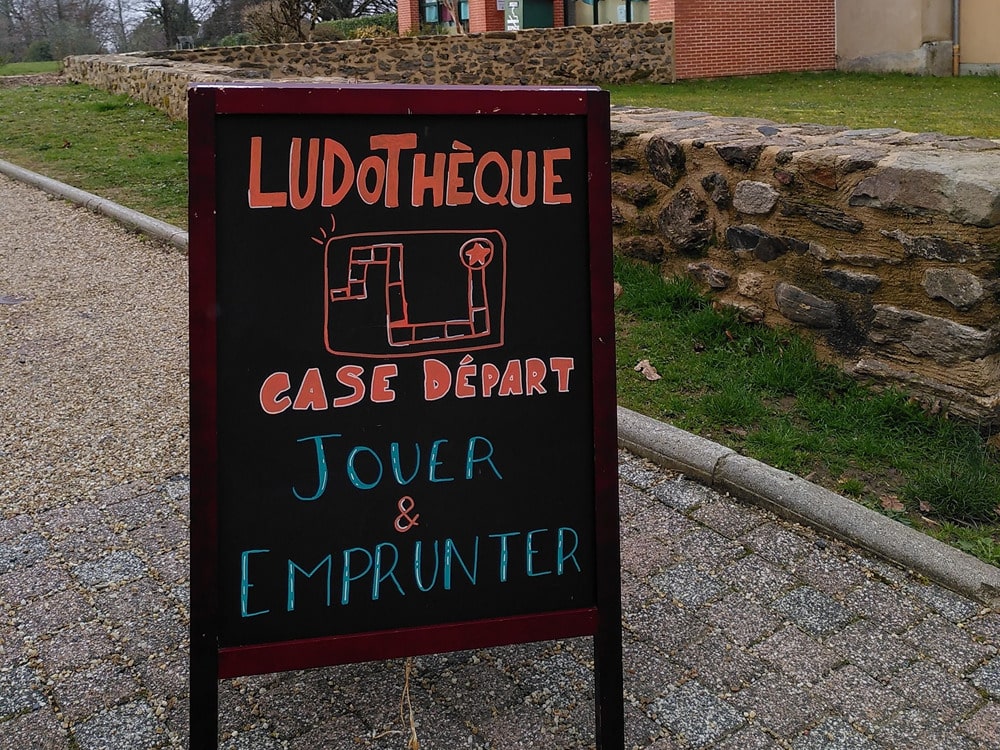 LUDOTHÈQUE
CASE DÉPART
JOUER
&
EMPRUNTER